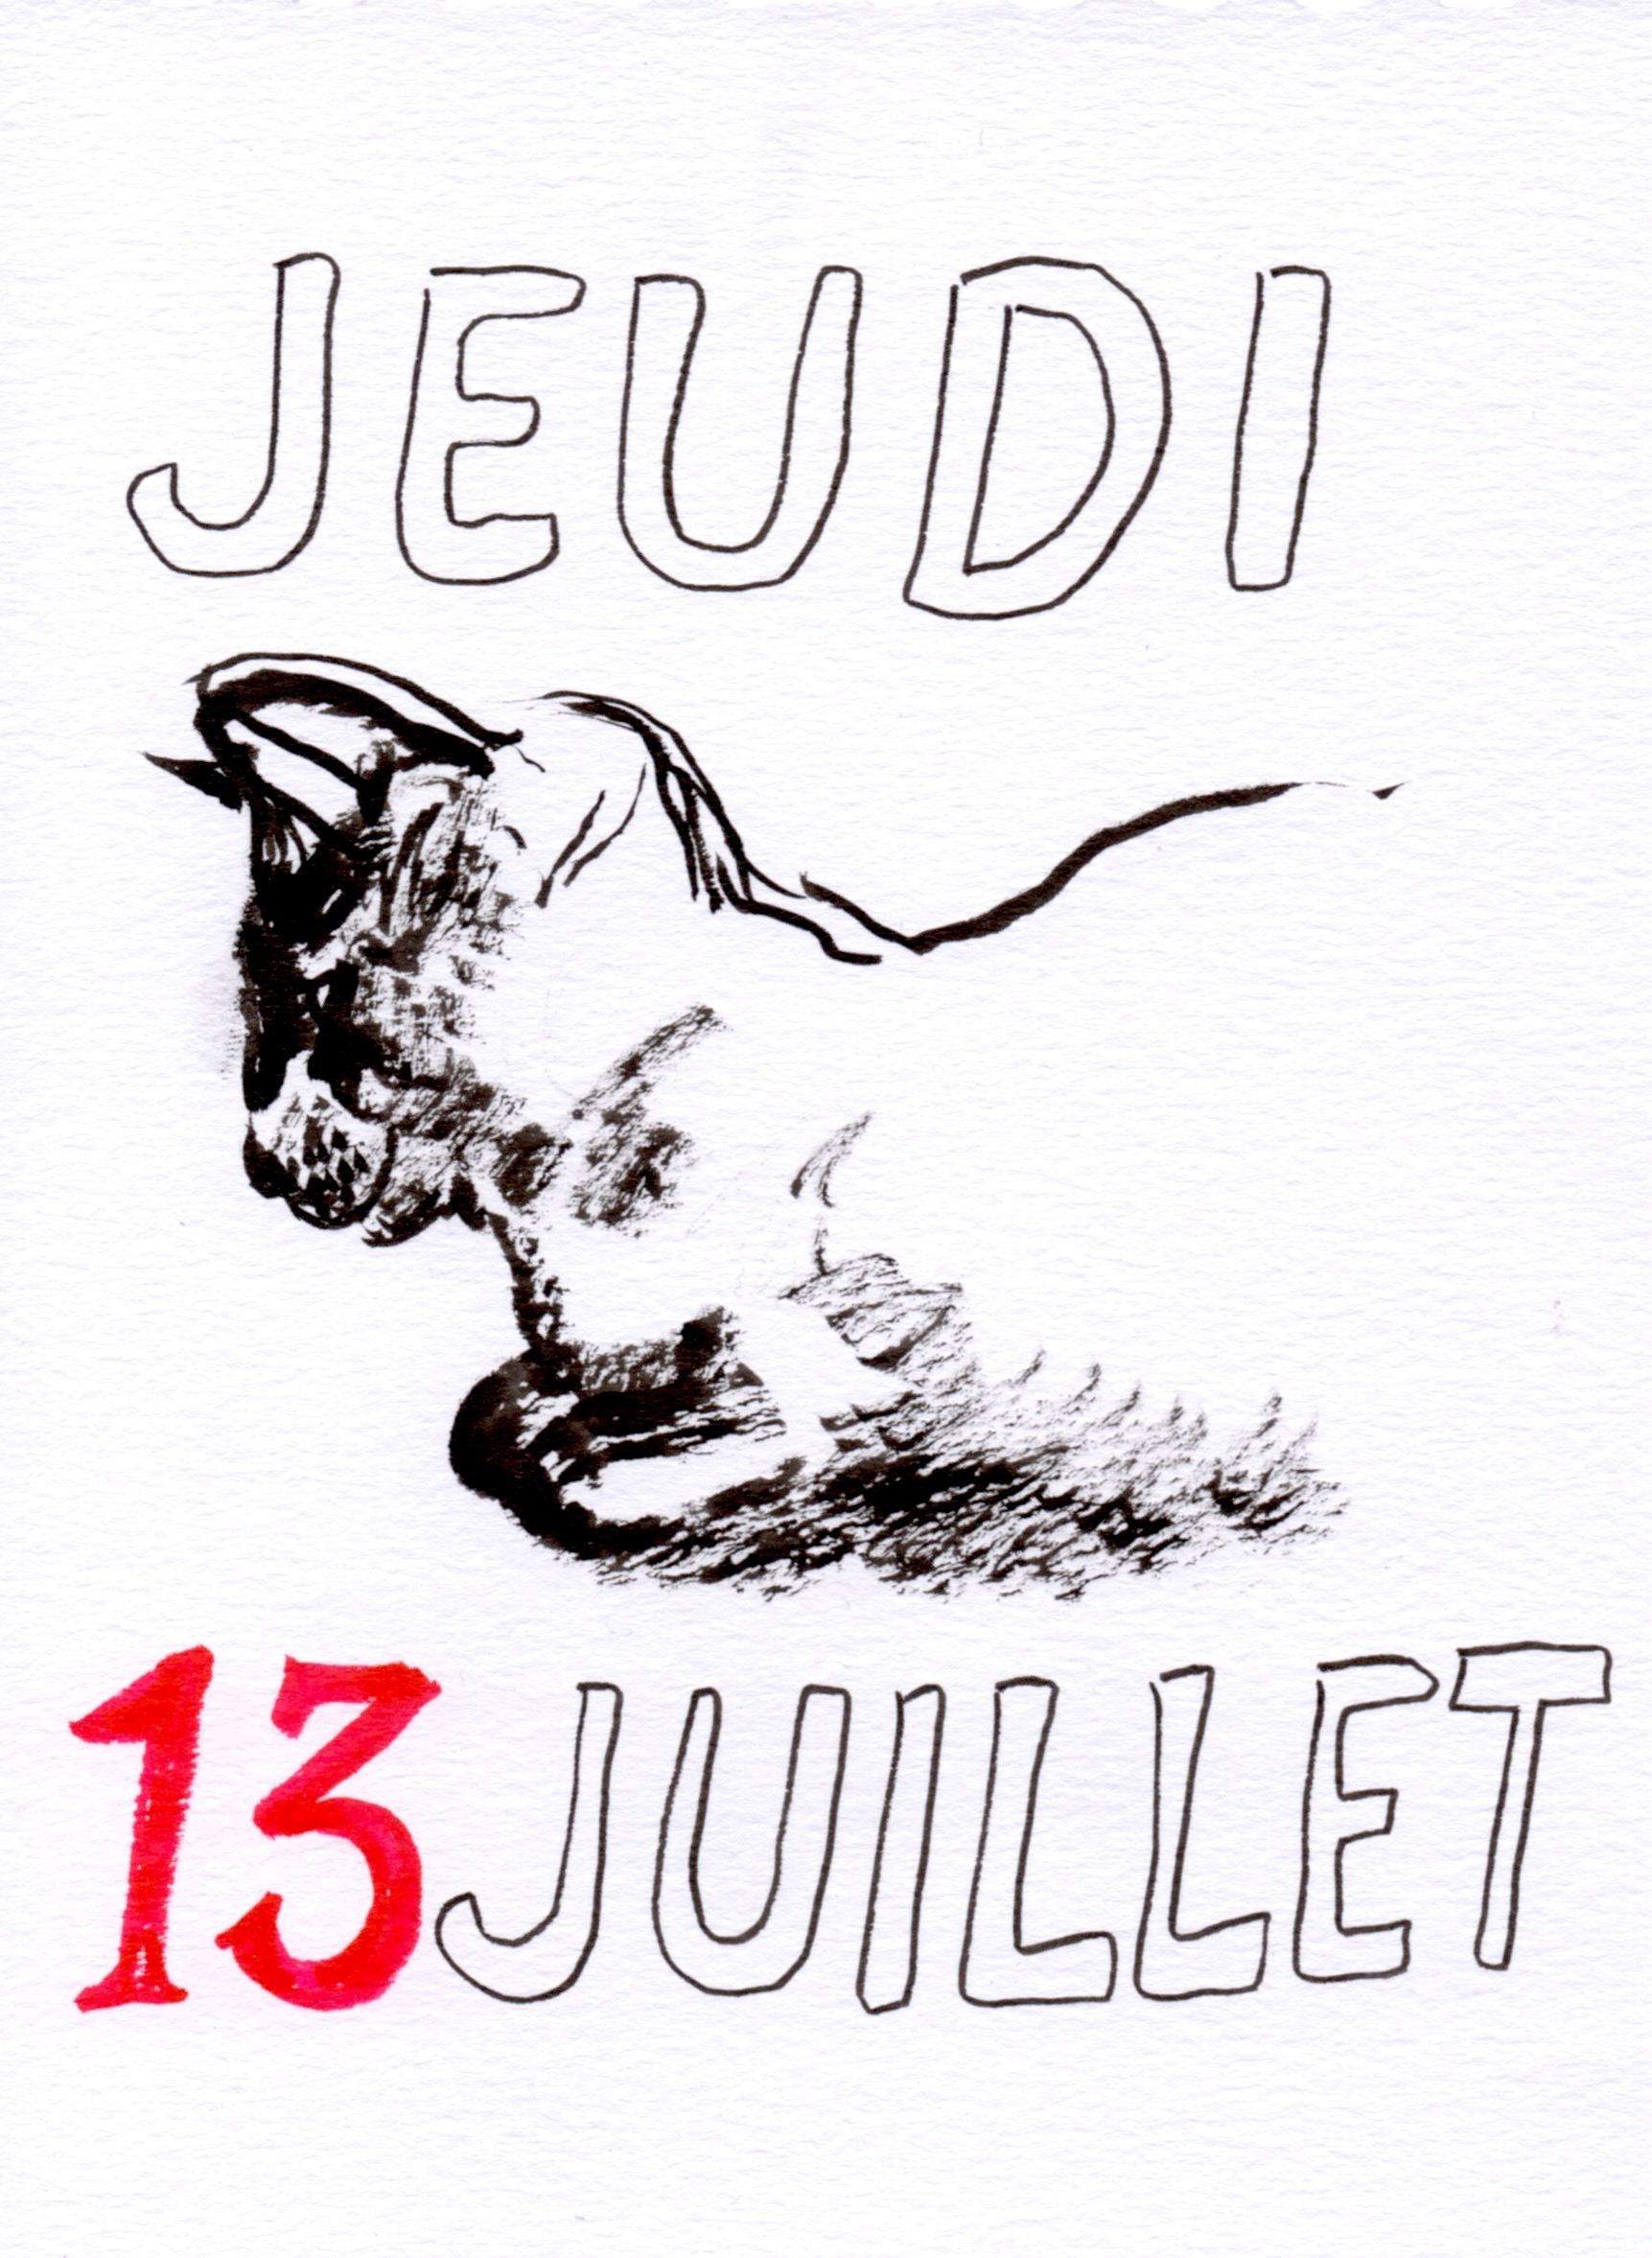 JEUDI
13 JUILLET